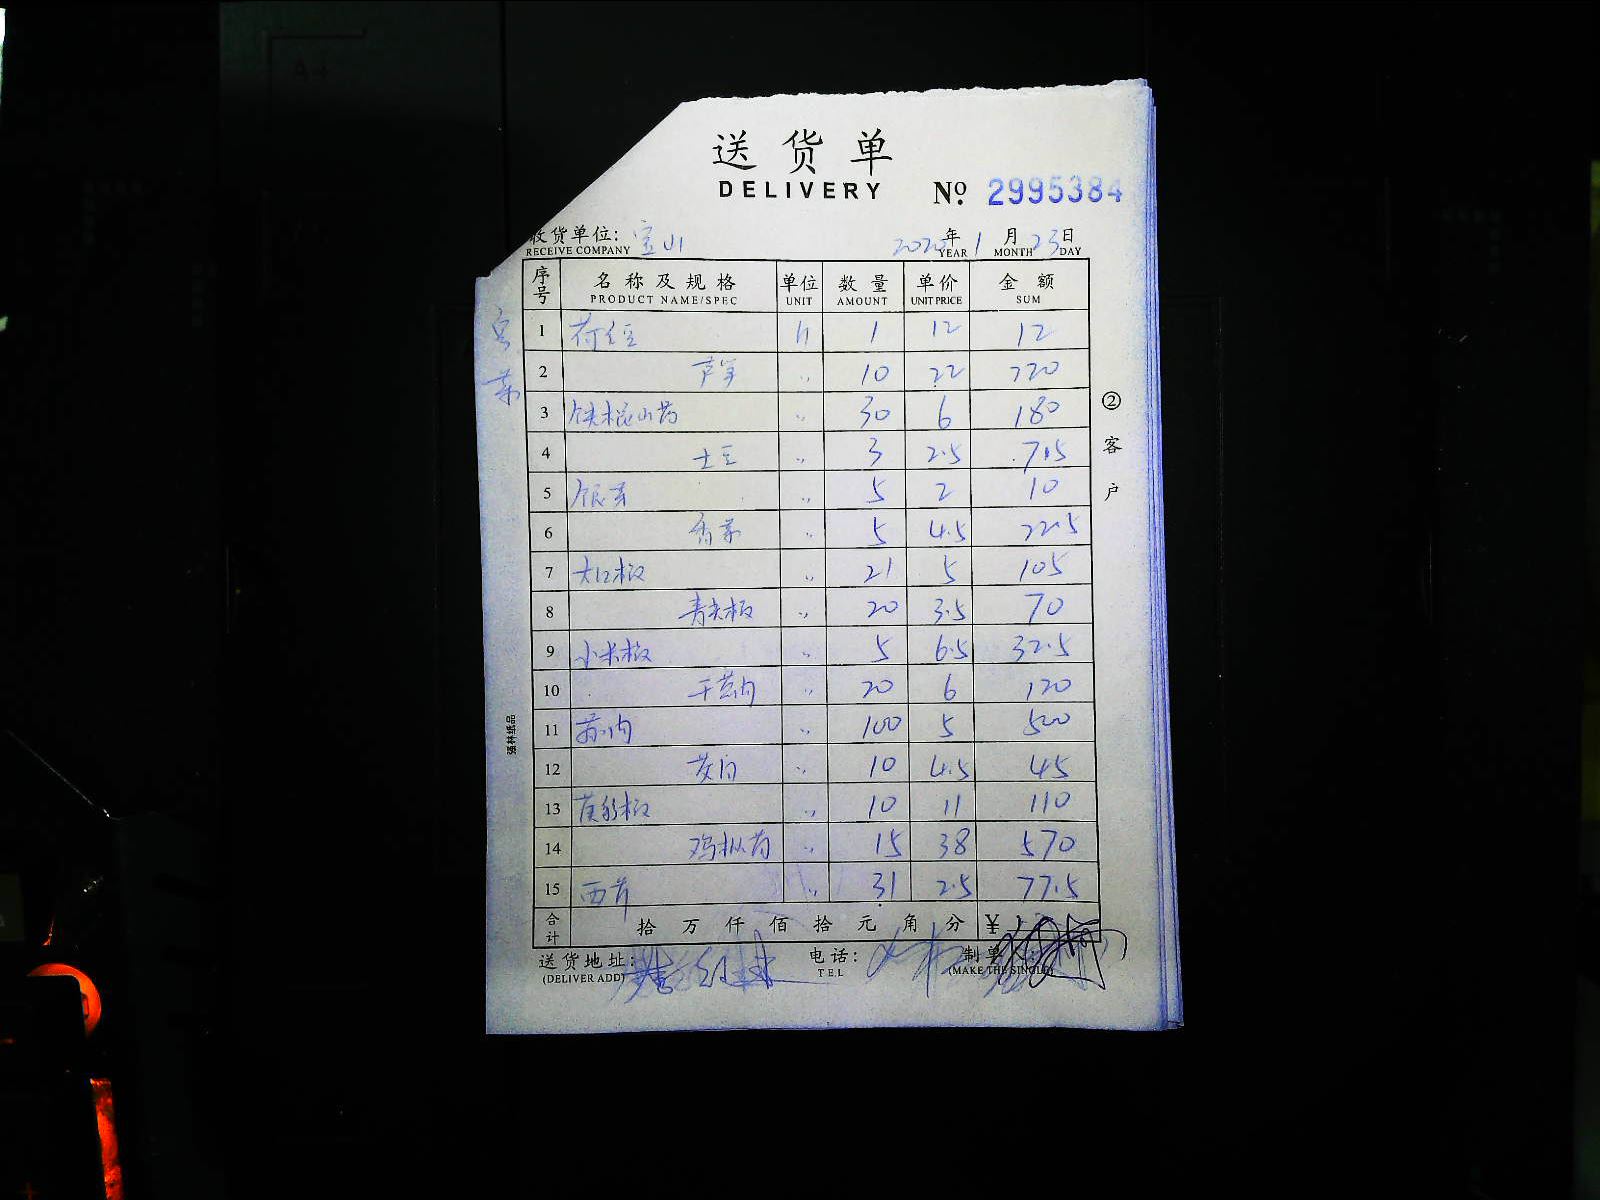 送货单
DELIVERY
No. 2995384
收货单位: 宝山 2020年1月23日
RECEIVE COMPANY YEAR MONTH DAY
序号 名称及规格 单位 数量 单价 金额
PRODUCT NAME/SPEC UNIT AMOUNT UNIT PRICE SUM
1 荷兰豆 斤 1 12 12
2 芦笋 〃 10 22 220
3 铁棍山药 〃 30 6 180
4 土豆 〃 3 2.5 7.5
5 银芽 〃 5 2 10
6 香茅 〃 5 4.5 22.5
7 大红椒 〃 21 5 105
8 青尖椒 〃 20 3.5 70
9 小米椒 〃 5 6.5 32.5
10 〃 20 6 120
11 〃 100 5 500
12 茭白 〃 10 4.5 45
13 椒 〃 10 11 110
14 鸡枞菌 〃 15 38 570
15 西芹 〃 31 2.5 77.5
合计 拾万仟佰拾元角分 ¥
送货地址: 电话: 制单人:
(DELIVER ADD) TEL (MAKE THE SINGLE)
②客户
强林纸品